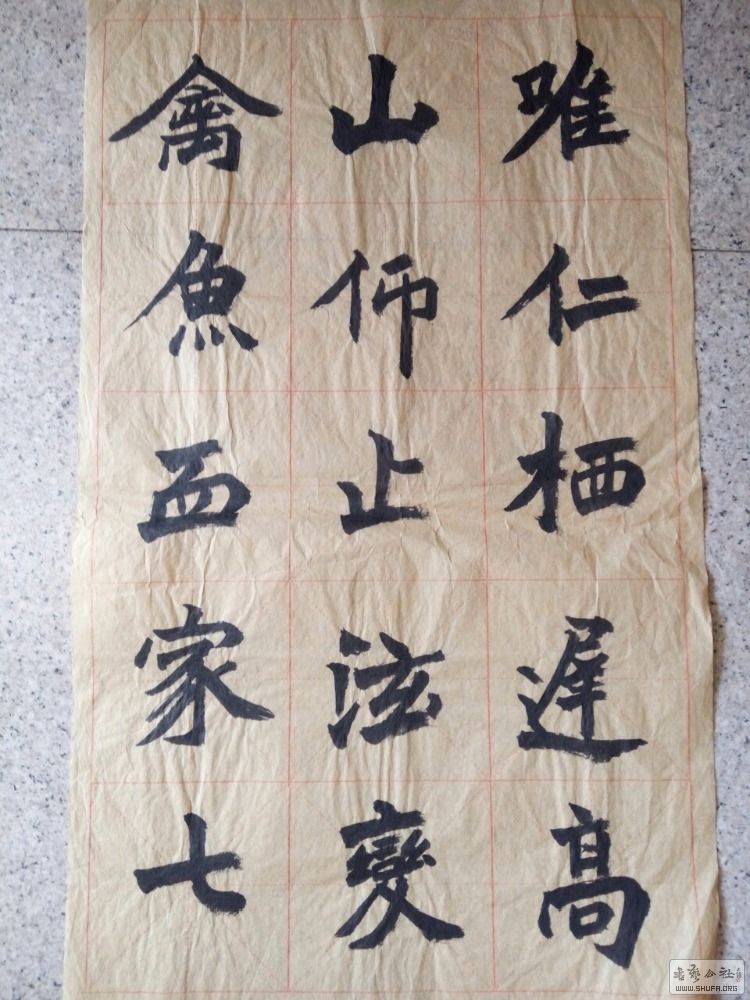 唯仁栖遲高
山仰止泫變
禽魚而家七
书艺公社
WWW.SHUFA.ORG